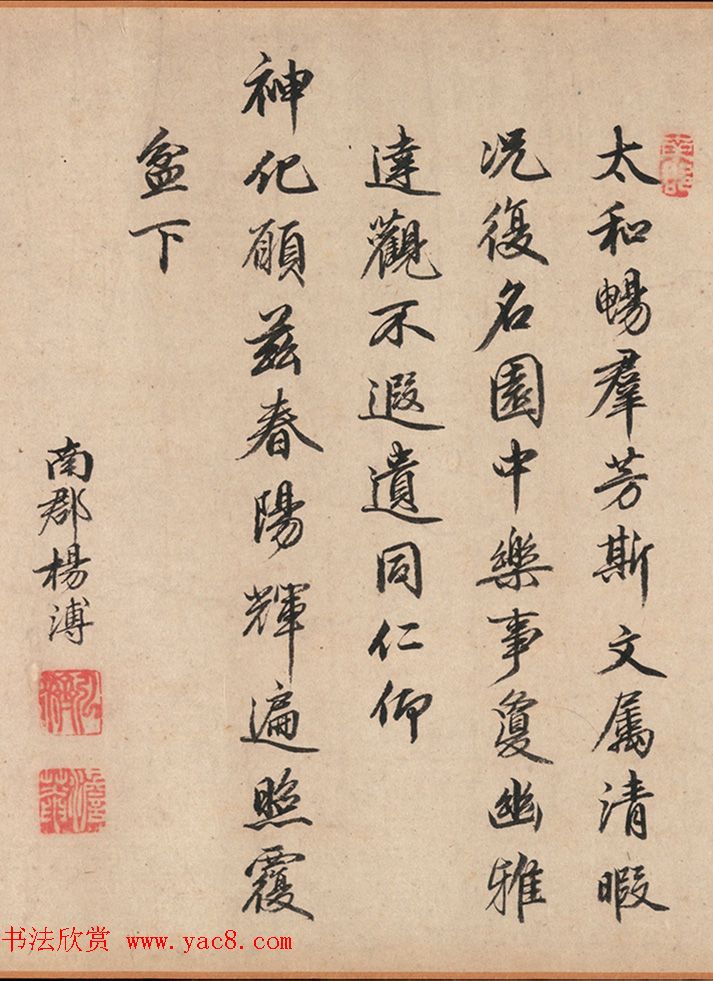 太和暢羣芳斯文属清暇
况復名園中樂事夐幽雅
達觀不遐遺同仁仰
神化願兹春陽輝遍照覆
盆下
南郡楊溥
弘濟
澹菴
书法欣赏 www.yac8.com